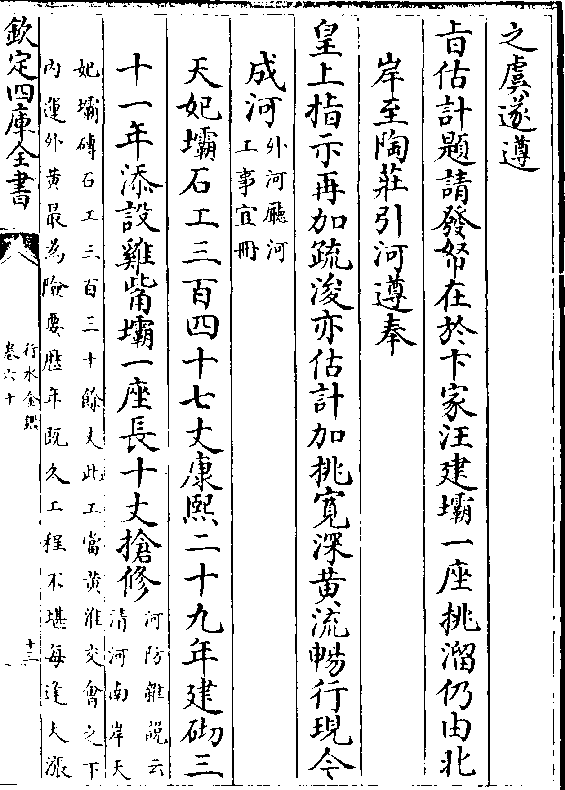 之虞遂遵
㫖估計題請發帑在於卞家汪建壩一座挑溜仍由北
岸至陶莊引河遵奉
皇上指示再加疏浚亦估計加挑寛深黄流暢行現今
成河外河廳河
工事宜冊
天妃壩石工三百四十七丈康熙二十九年建砌三
十一年添設雞嘴壩一座長十丈搶修河防雜説云
清河南岸天
妃壩磚石工三百三十餘丈此工當黄淮交會之下
内運外黄最為險要歴年既久工程不堪每逢大漲
欽定四庫全書
行水金鑑
卷六十
十三